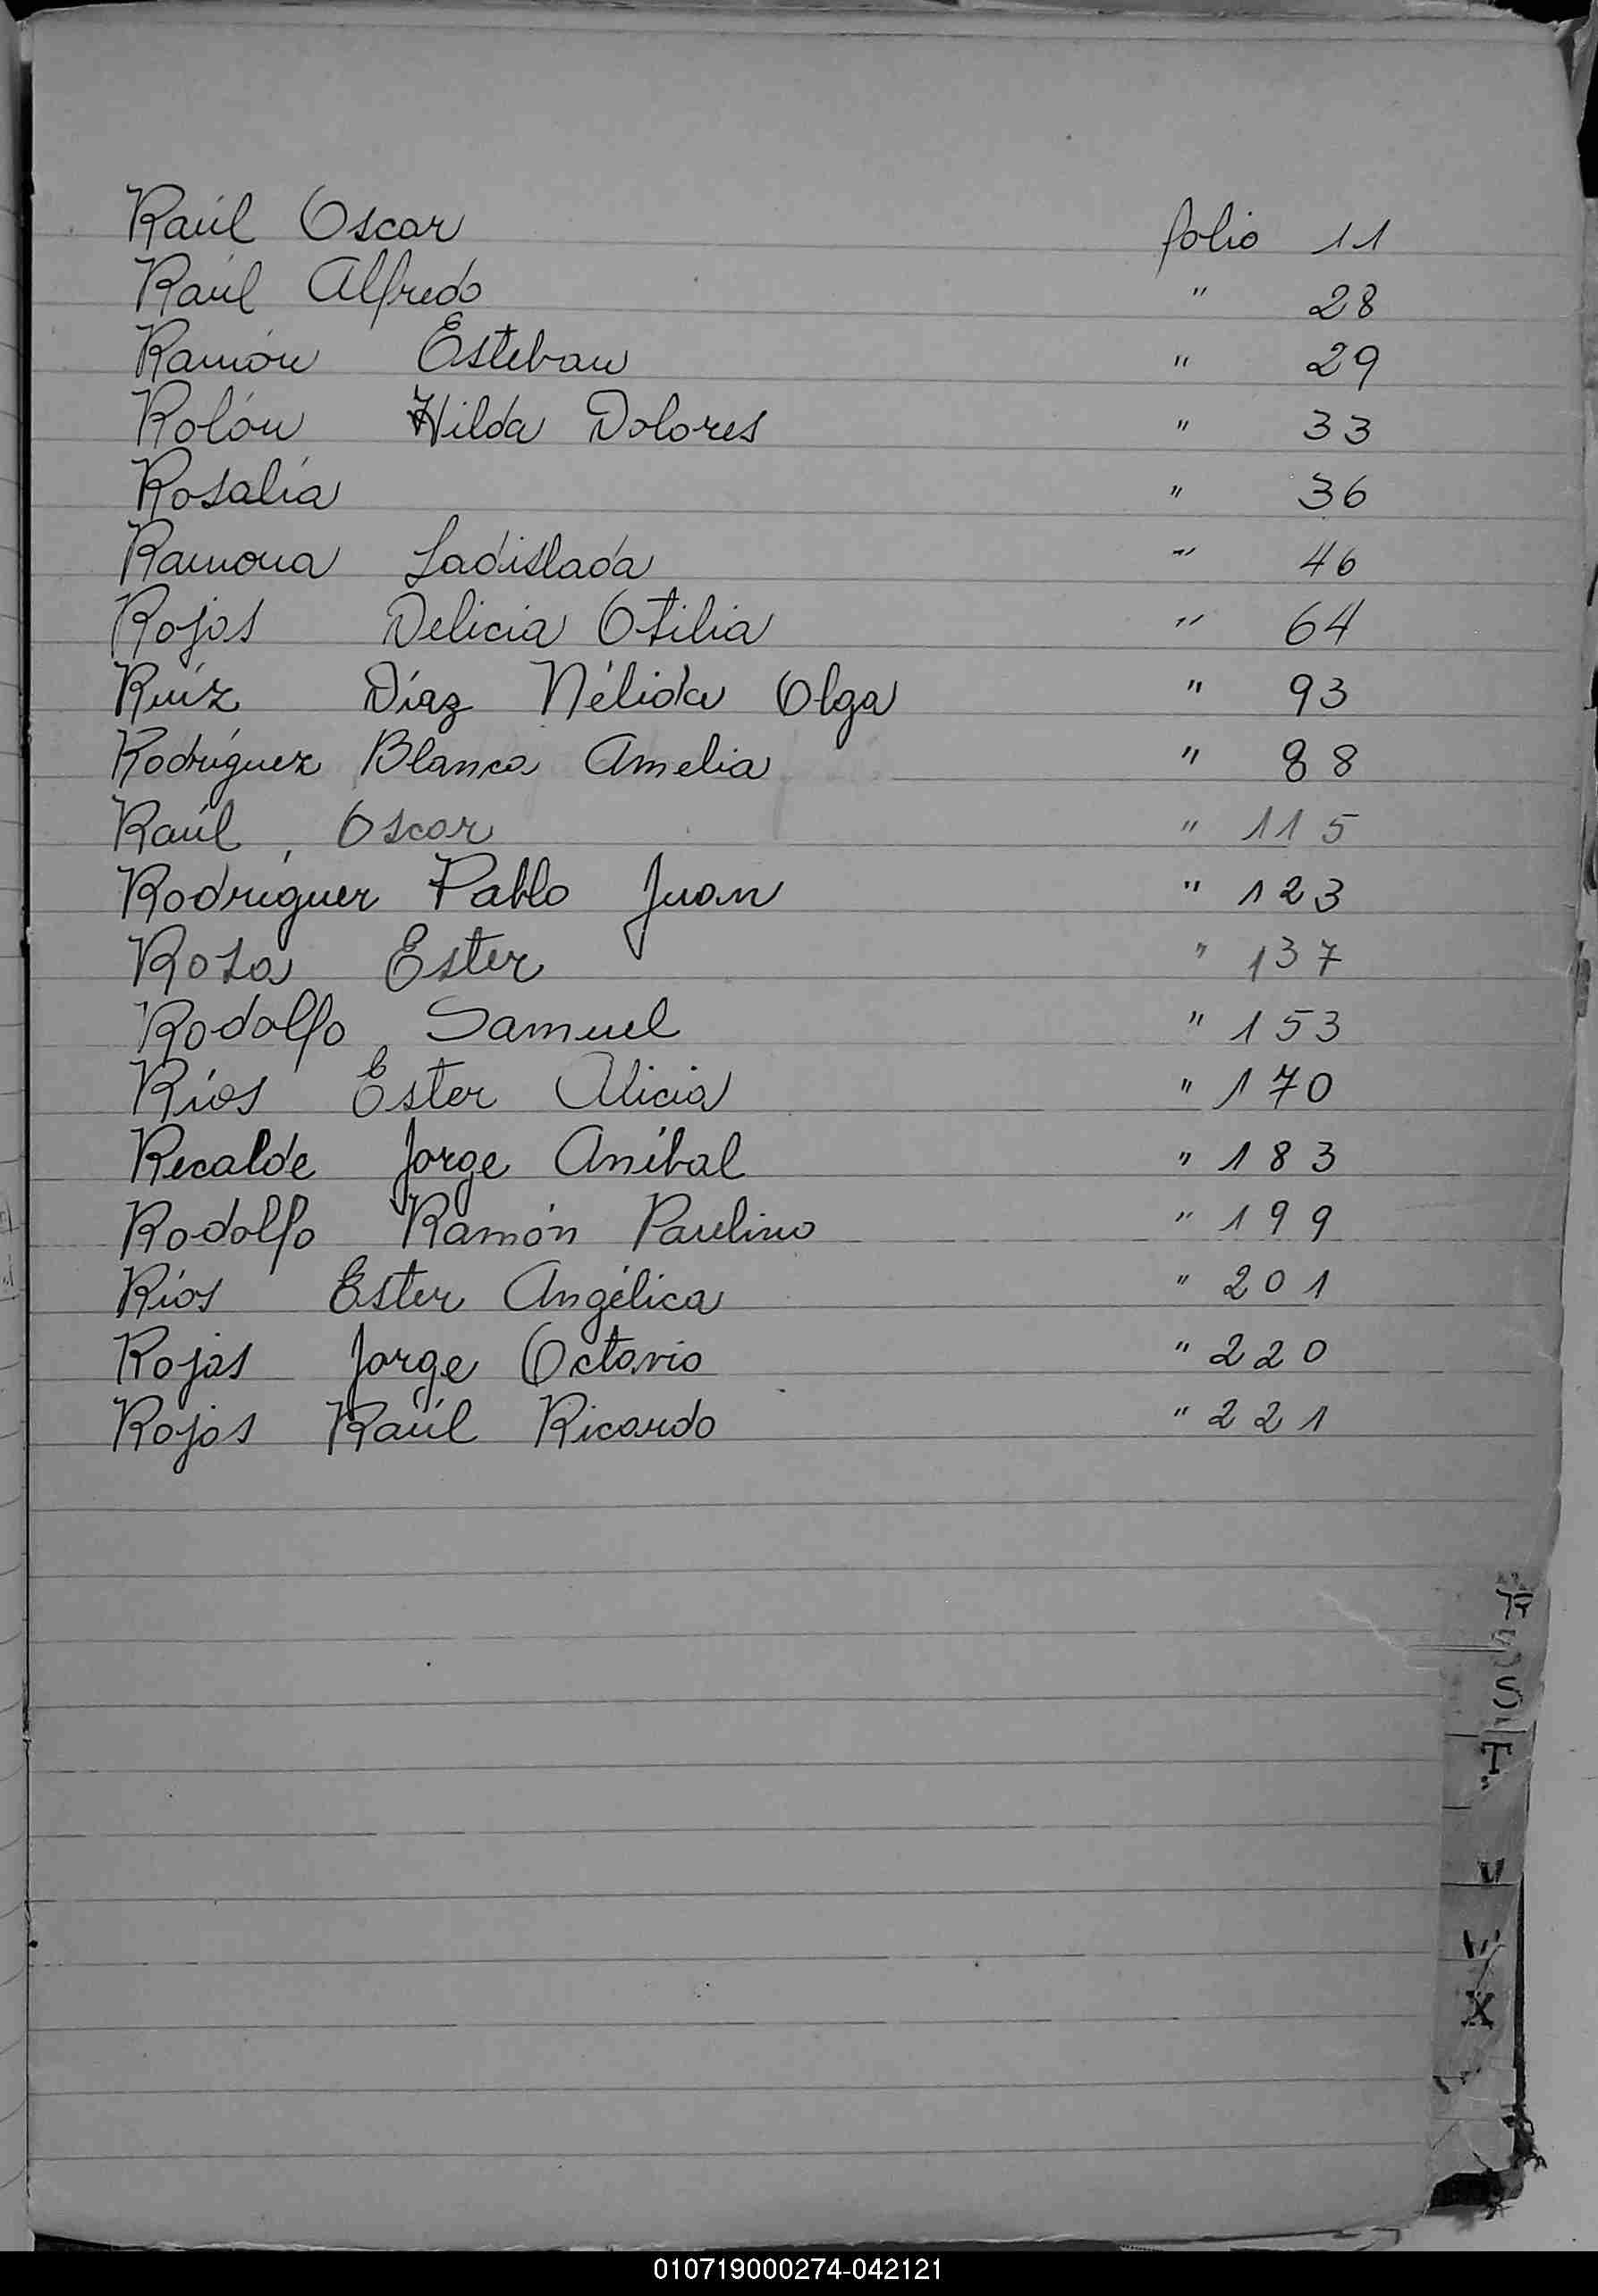 Raúl Oscar folio 11
Raúl Alfredo " 28
Ramón Esteban " 29
Rolón Hilda Dolores " 33
Rosalía " 36
Ramona Ladislada " 46
Rojas Delicia Otilia " 64
Ruíz Díaz Nélida Olga " 93
Rodríguez Blanca Amelia " 88
Raúl, Oscar " 115
Rodríguez Pablo Juan " 123
Rosa Ester " 137
Rodolfo Samuel " 153
Ríos Ester Alicia " 170
Recalde Jorge Aníbal " 183
Rodolfo Ramón Paulino " 199
Ríos Ester Angélica " 201
Rojas Jorge Octavio " 220
Rojas Raúl Ricardo " 221
S
T
V
W
X
010719000274-042121